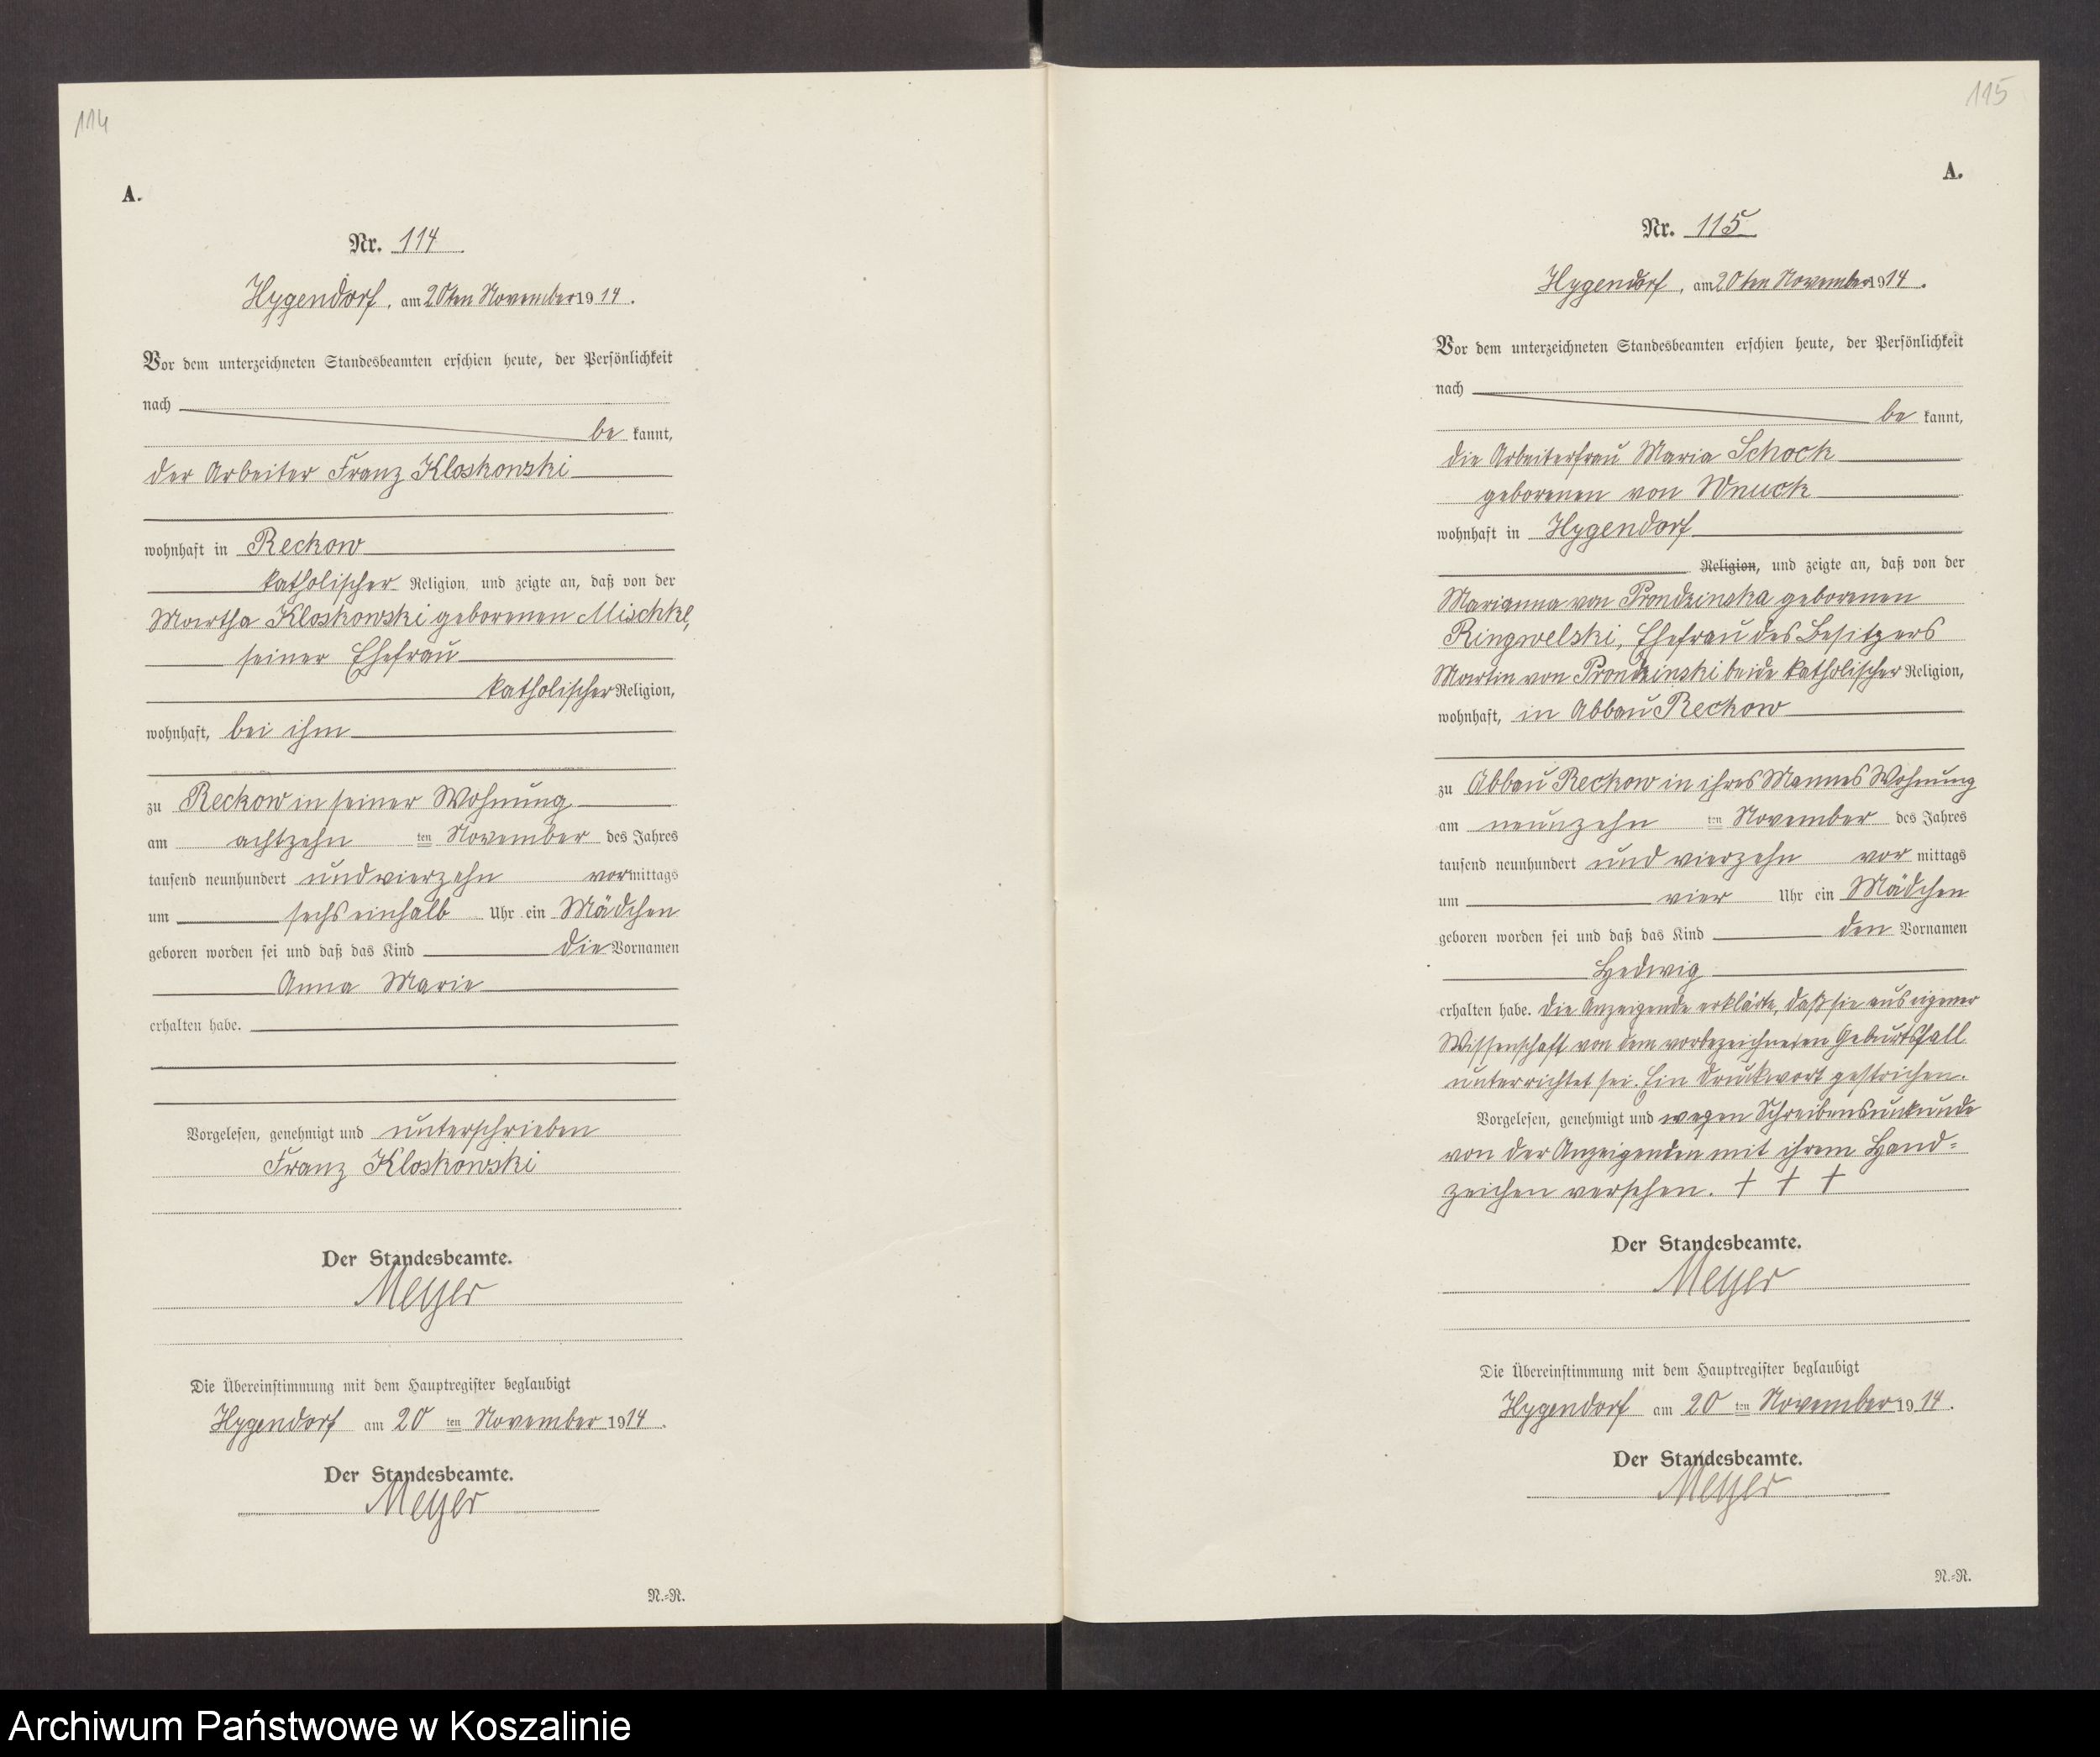 114
A.
Nr. 114
Hygendorf, am 20ten November 1914.
Vor dem unterzeichneten Standesbeamten erschien heute, der Persönlichkeit
nach
be kannt,
der Arbeiter Franz Kloskowski
wohnhaft in Reckow
katholischer Religion, und zeigte an, daß von der
Martha Kloskowski geborenen Mischke,
seiner Ehefrau
katholischer Religion,
wohnhaft, bei ihm
zu Reckow in seiner Wohnung
am achtzehn ten November des Jahres
tausend neunhundert und vierzehn vormittags
um sechs einhalb Uhr ein Mädchen
geboren worden sei und daß das Kind die Vornamen
Anna Marie
erhalten habe.
Vorgelesen, genehmigt und unterschrieben
Franz Kloskowski
Der Standesbeamte.
Meyer
Die Übereinstimmung mit dem Hauptregister beglaubigt
Hygendorf am 20 ten November 1914.
Der Standesbeamte.
Meyer
N.=R.
115
A.
Nr. 115
Hygendorf, am 20ten November 1914.
Vor dem unterzeichneten Standesbeamten erschien heute, der Persönlichkeit
nach
be kannt,
die Arbeiterfrau Maria Schock
geborenen von Wnuck
wohnhaft in Hygendorf
Religion, und zeigte an, daß von der
Marianna von Prondzinska geborenen
Ringwelski, Ehefrau des Besitzers
Martin von Prondzinski beide katholischer Religion,
wohnhaft, in Abbau Reckow
zu Abbau Reckow in ihres Mannes Wohnung
am neunzehn ten November des Jahres
tausend neunhundert und vierzehn vor mittags
um vier Uhr ein Mädchen
geboren worden sei und daß das Kind den Vornamen
Hedwig
erhalten habe. Die Anzeigende erklärte, daß sie aus eigener
Wissenschaft von dem vorbezeichneten Geburtsfall
unterrichtet sei. Ein Druckwort gestrichen.
Vorgelesen, genehmigt und wegen Schreibensunkunde
von der Anzeigenden mit ihrem Hand=
zeichen versehen. + + +
Der Standesbeamte.
Meyer
Die Übereinstimmung mit dem Hauptregister beglaubigt
Hygendorf am 20 ten November 1914.
Der Standesbeamte.
Meyer
N.=R.
Archiwum Państwowe w Koszalinie